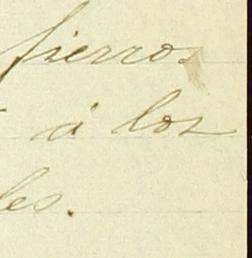 fierros
á los
les.